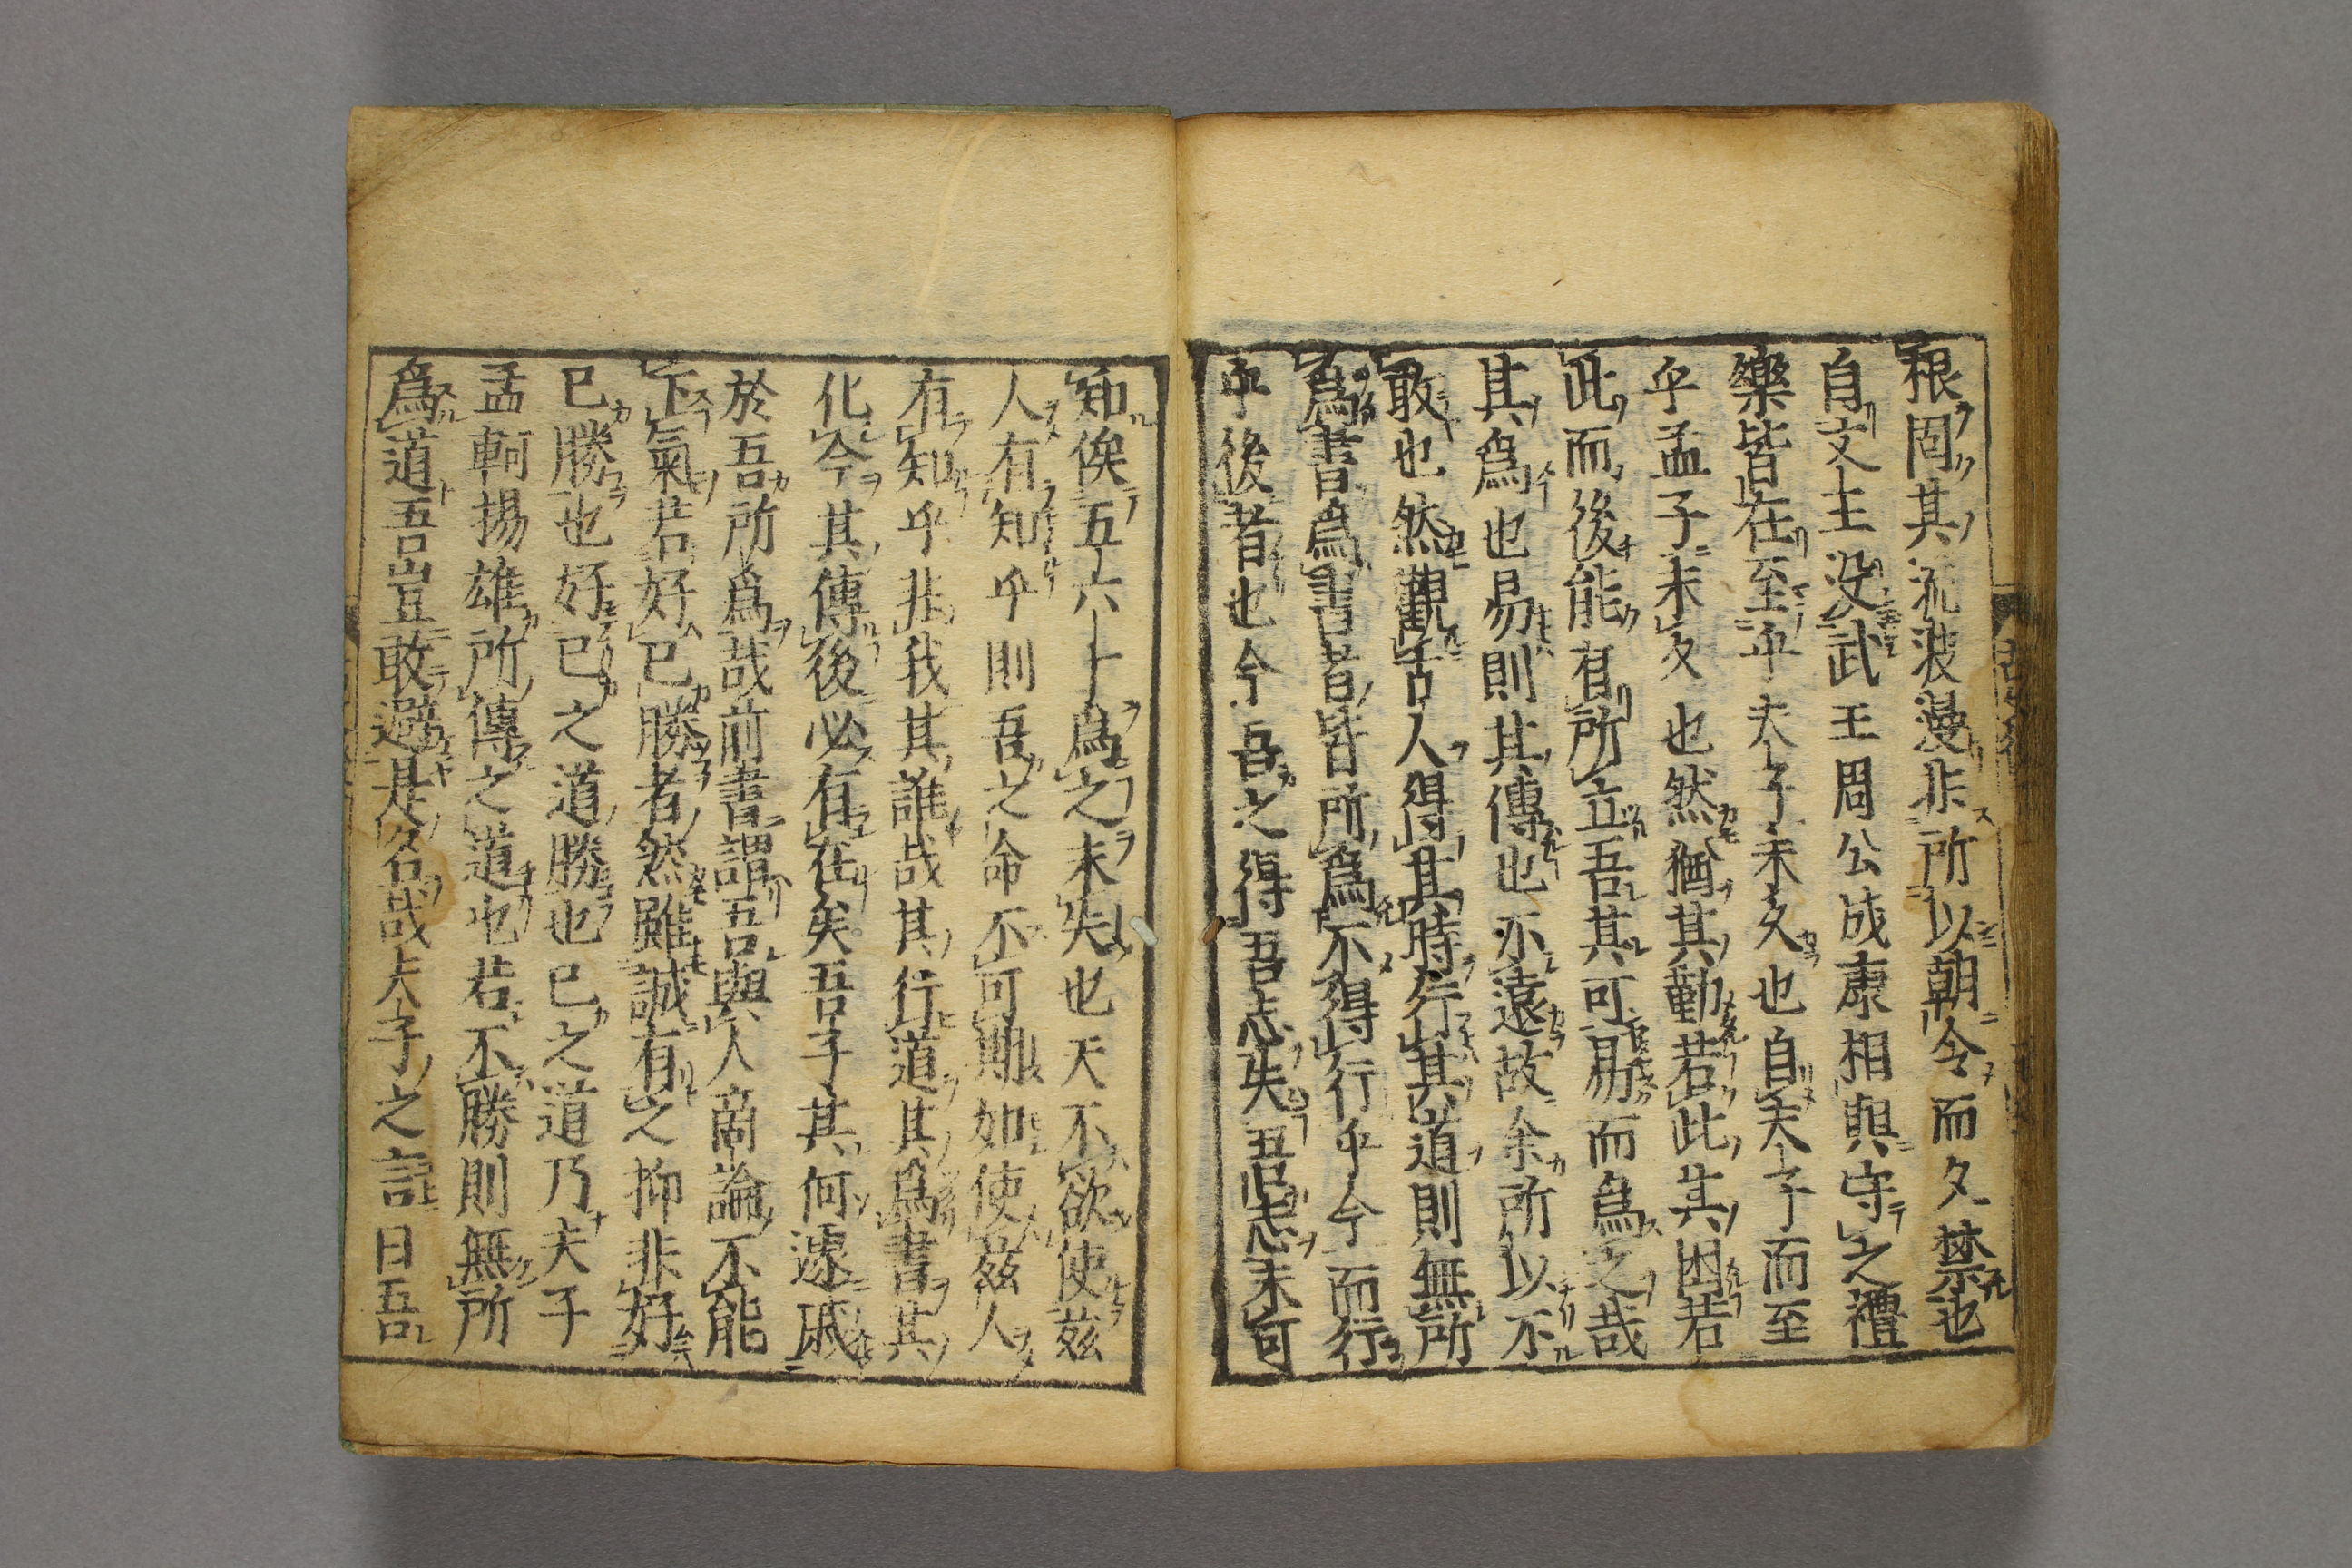 根固其流波漫非所以朝令而夕禁也
自文王没武王周公成康相與守之禮
樂皆在至乎夫子未久也自夫子而至
乎孟子未久也然猶其勤若此其困若
此而後能有所立吾其可易而爲之哉
其爲也易則其傳也不遠故余所以不
敢也然觀古人得其時行其道則無所
爲書爲書者皆所爲不得行乎今而行
乎後者也今吾之得吾志失吾志未可
知俟五六十爲之未失也天不欲使玆
人有知乎則吾之命不可期如使玆人
有知乎非我其誰哉其行道其爲書其
化今其傳後必有在矣吾子其何遽戚
於吾所爲哉前書謂吾與人啇論不能
下氣若好己勝者然雖誠有之抑非好
己勝也好己之道勝也己之道乃夫子
孟軻揚雄所傳之道也若不勝則無所
爲道吾豈敢避是名哉夫子之言曰吾